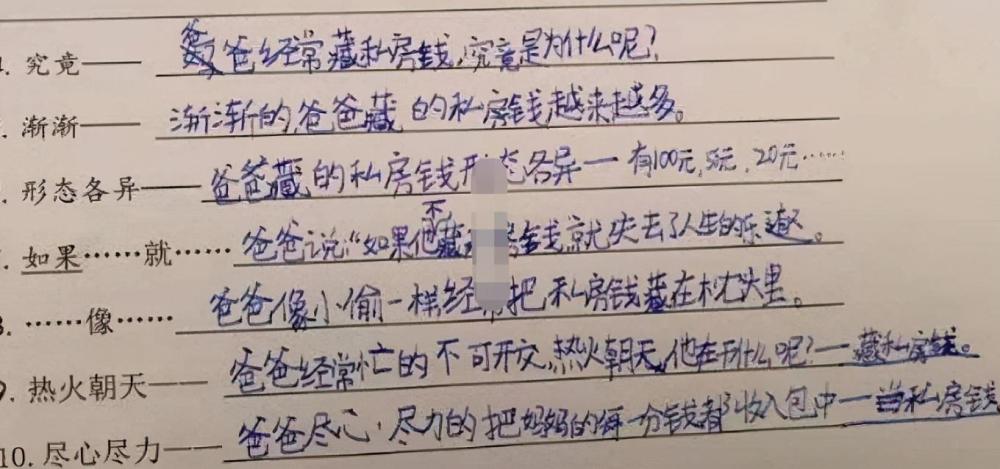 . 究竟—— 爸爸经常藏私房钱,究竟是为什么呢?
. 渐渐—— 渐渐的,爸爸藏的私房钱越来越多。
. 形态各异—— 爸爸藏的私房钱形态各异—有100元,5元,20元……
. 如果……就…… 爸爸说:“如果他不藏房钱,就失去了人生的乐趣。
8. ……像…… 爸爸像小偷一样经常把私房钱藏在枕头里。
9. 热火朝天—— 爸爸经常忙的不可开交,热火朝天,他在干什么呢?—藏私房钱。
10. 尽心尽力—— 爸爸尽心尽力的把妈妈的每一分钱都收入包中—当私房钱